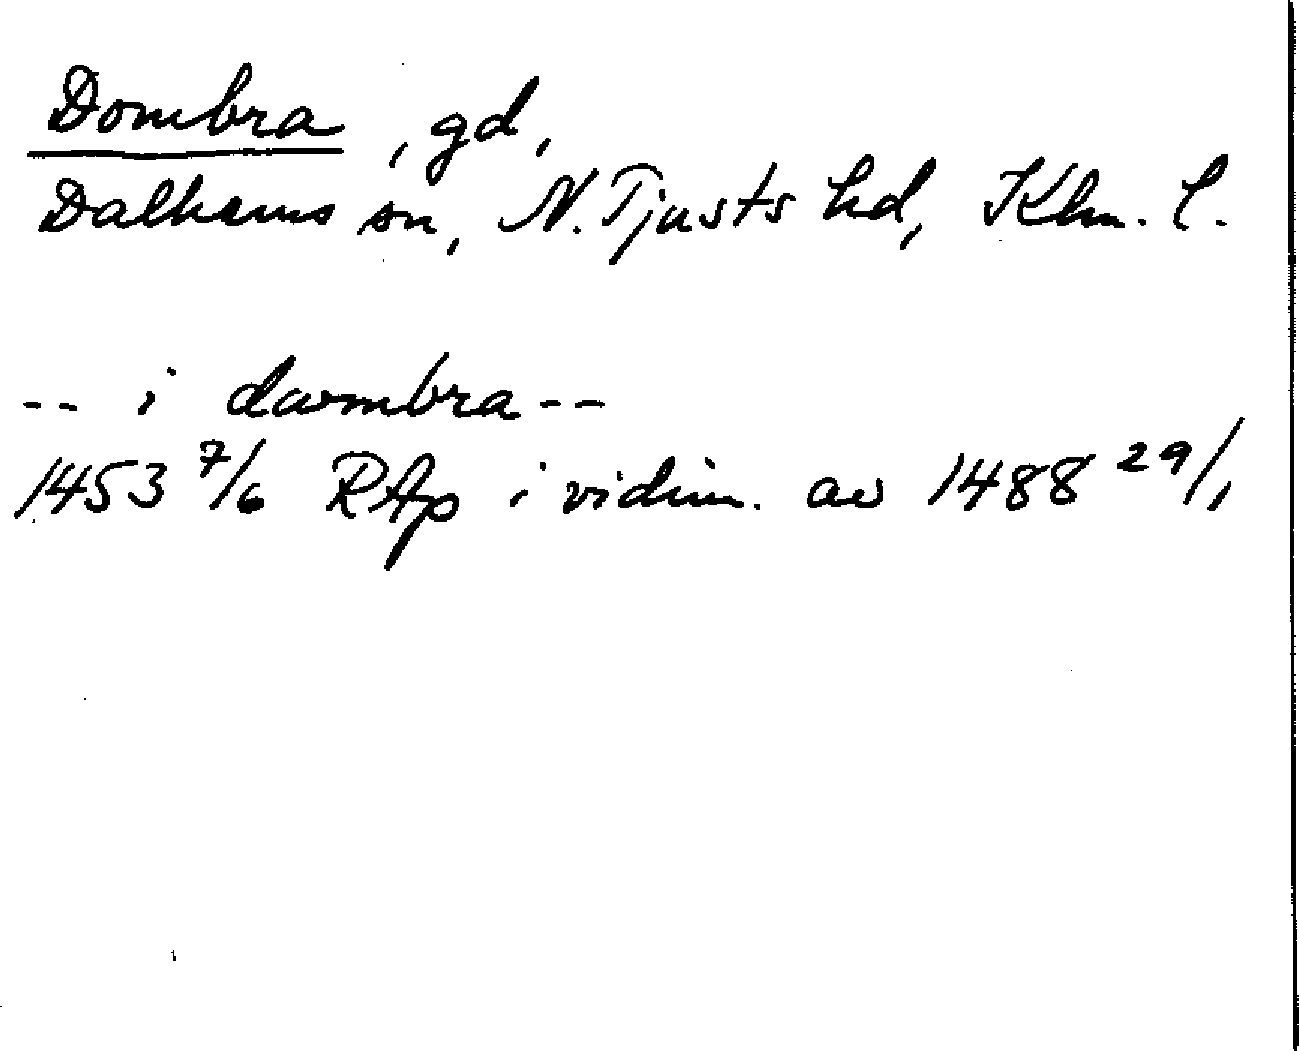 Dombra, gd,
Dalhems sn, N. Tjusts hd, Klm. l.
-- i dwmbra --
1453 7/6 RAp i vidim. av 1488 29/1